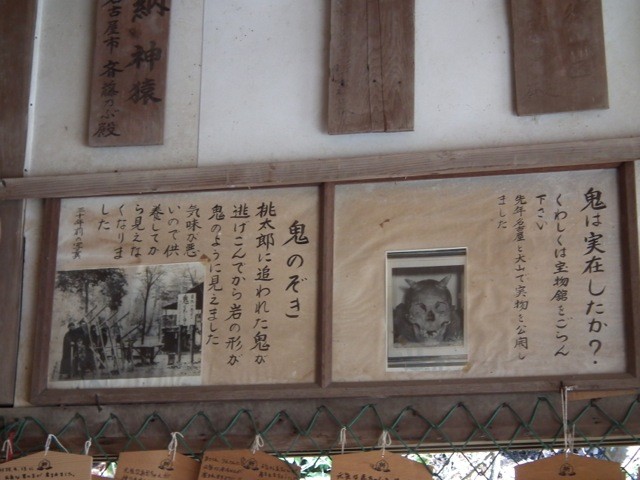 納神猿
名古屋市 斉藤のぶ殿
鬼は実在したか?
くわしくは宝物館をごらん
下さい
先年名古屋と犬山で実物を公開し
ました
鬼のぞき
桃太郎に追われた鬼が
逃げこんでから岩の形が
鬼のように見えました
気味が悪
いので供
養してか
ら見えな
くなりま
した